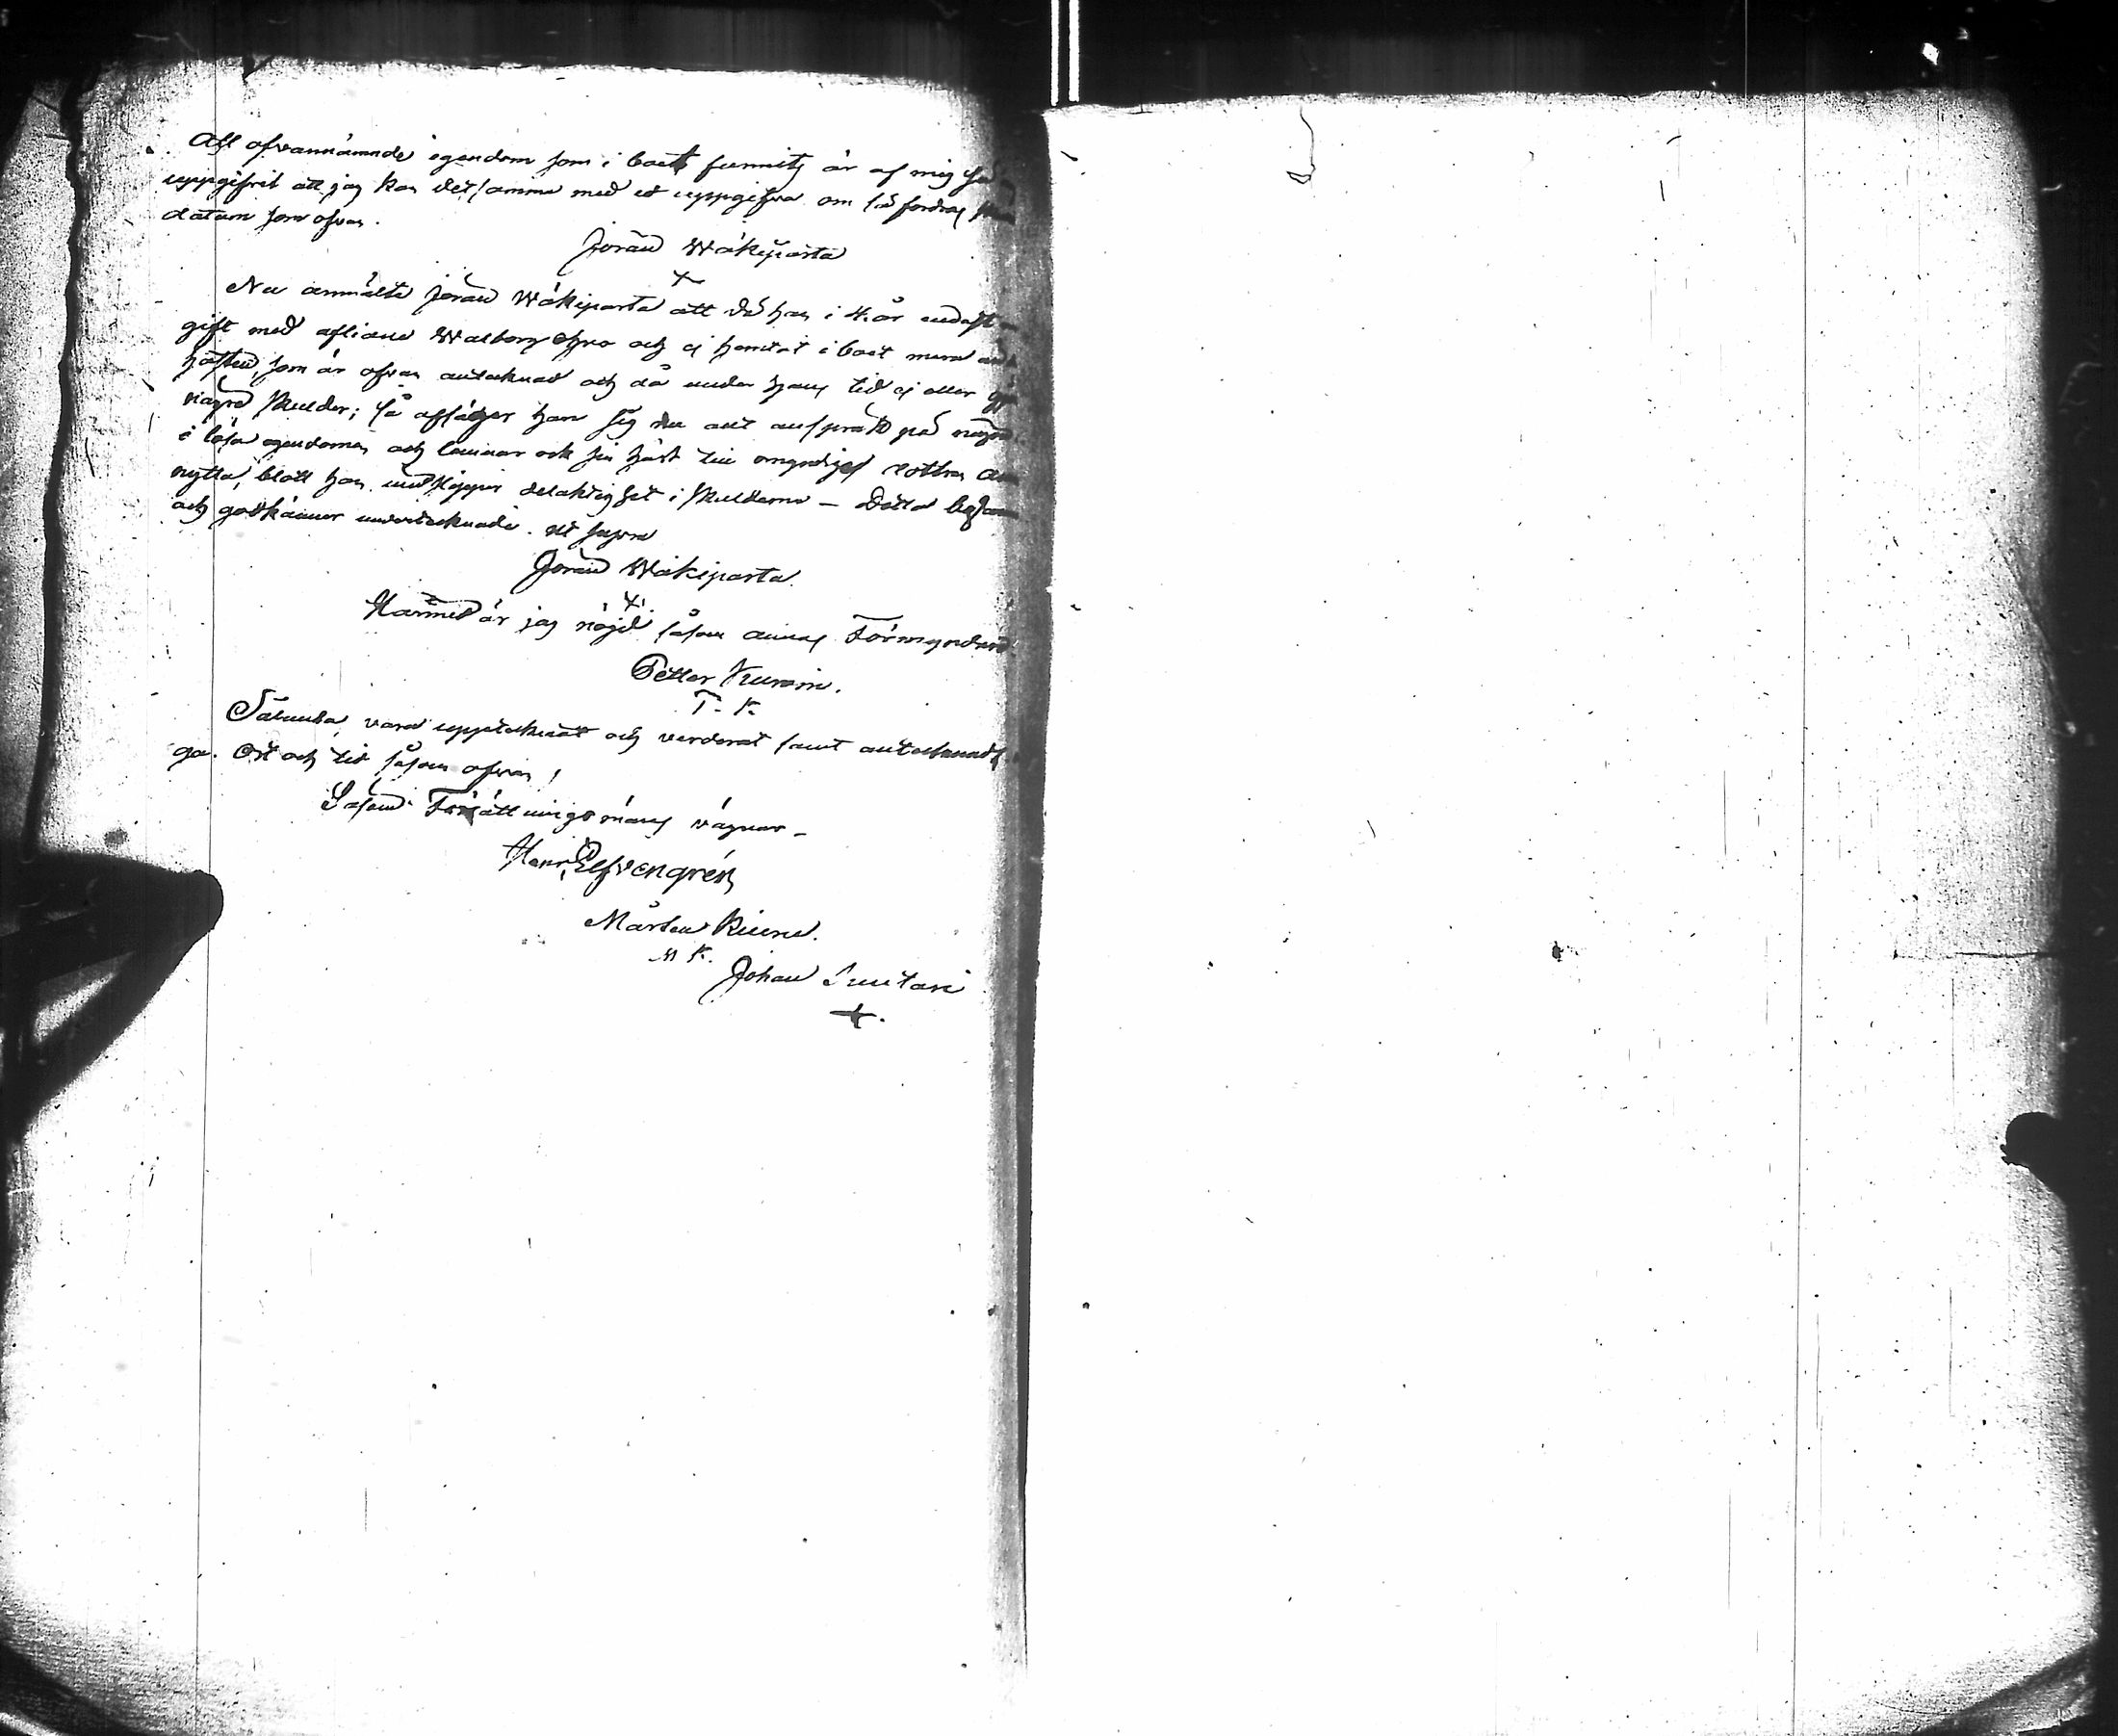 All ofvannämnde egendom som i boet funnits är af mig så
uppgifvit att jag kan det samma med ed uppgifva om så fordras
datum som ofvan.
Jöran Wäkiparta
X
Nu anmälte Jöran Wäkiparta att då han i 4. år endast
gift med aflidne Walborg och ej hemtat i boet mera än
hästen, som är ofvan antecknad och då under hans tid ej eller
några skulder; så afsäger han sig nu allt anspråk på någon
i lösa egendomen och lemnar ock sin häst till omyndiges dottren
nytta, blott han undslipper delaktighet i skulderna - Detta
och godkänner undertecknade. ut supra
Jöran Wäkiparta.
X
Härmed är jag nöjd såsom Annas Förmyndare
Petter
P. K.
Sålunda vara uppteknat och värderat samt
ga. Ort och tid såsom ofvan!
Såsom Förrättningsmäns vägnar -
Henr. Elfvengrén
Mårten Kiuru.
M K.
Johan Suutari
+.